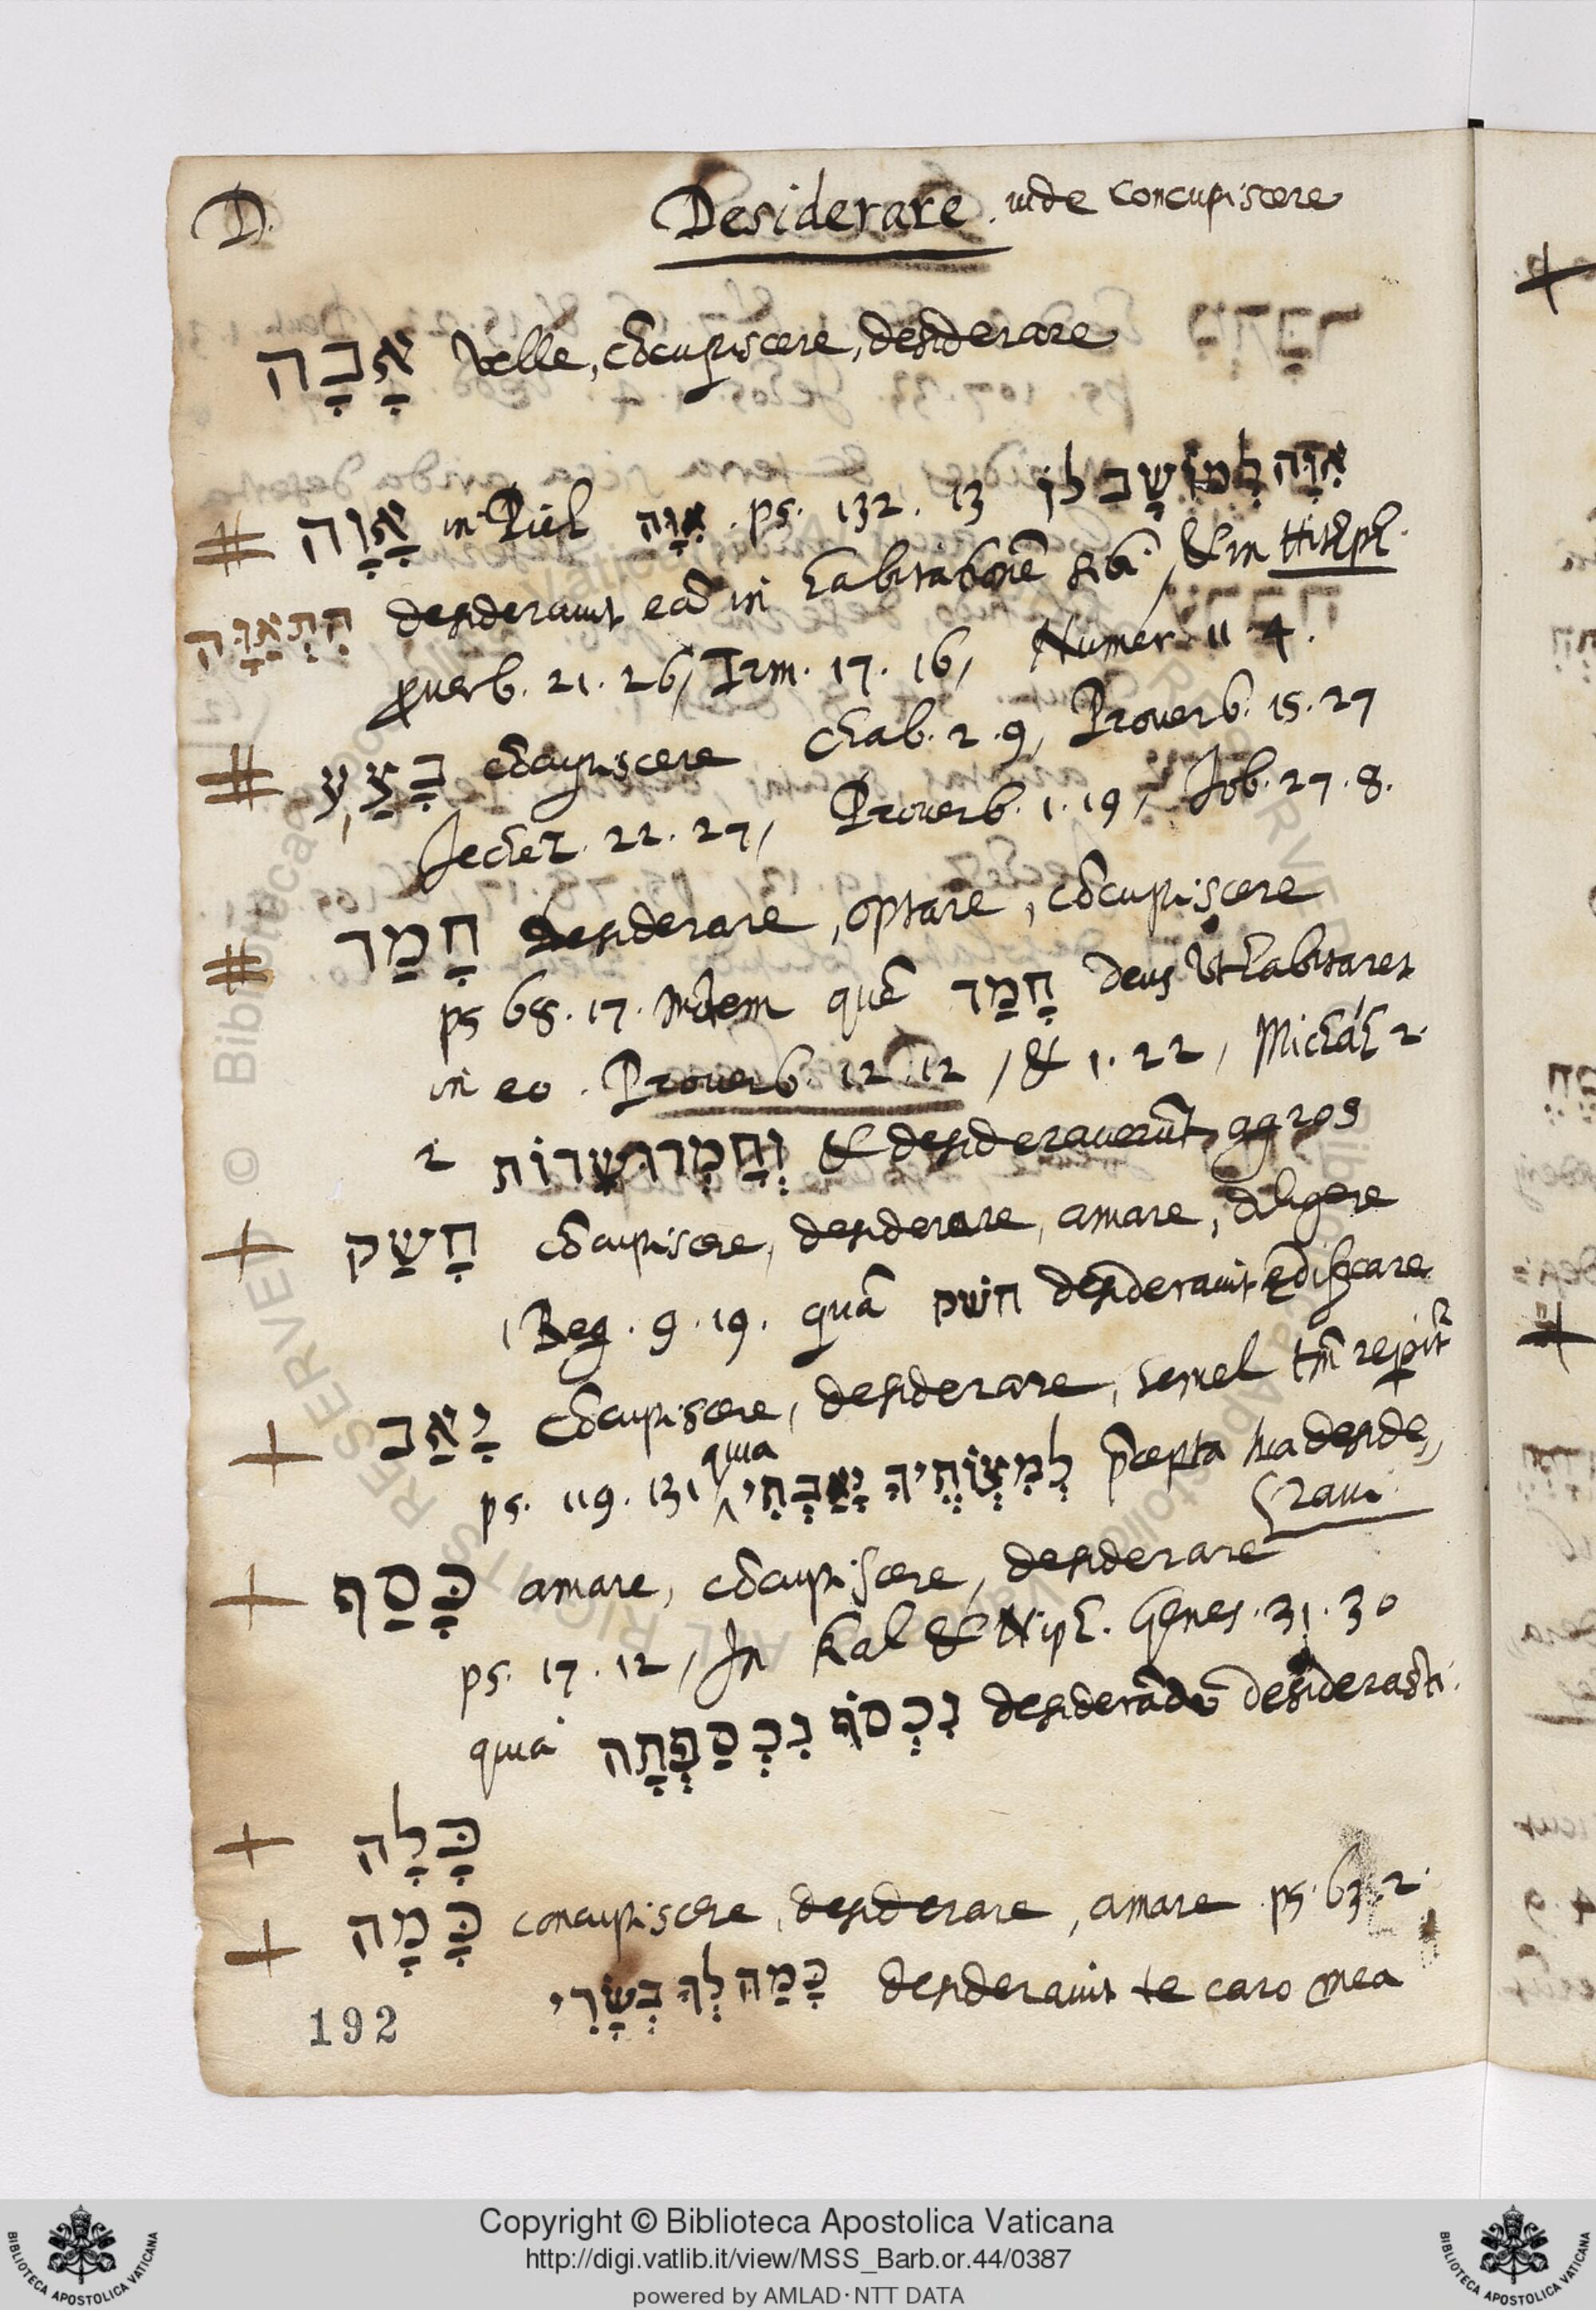 D.
Desiderare. uide Concupiscere
אָבָה Velle, cōcupiscere, desiderare
אָוָה in Piel אִוָּה. ps. 132. 13 אִוָּהּ לְמוֹשָׁב לוֹ
desiderauit eā in habitationē sibi, & in Hithph.
הִתְאַוָּה
prouerb. 21. 26, Irm. 17. 16, Numer. 11. 4.
בָּצַע cōcupiscere Chab. 2. 9, Prouerb. 15. 27
Jechez. 22. 27, Prouerb. 1. 19, Iob. 27. 8.
חָמַד desiderare, optare, cōcupiscere
ps 68. 17. quē חָמַד deus Vt habitaret
in eo. Prouerb. 12. 12, & 1. 22, Michah 2.
2 וְחָמְדוּ שָׂדוֹת & desiderauerūt agros
חָשַׁק cōcupiscere, desiderare, amare, diligere
1 Reg. 9. 19. quā חשק desiderauit ędificare
יָאַב cōcupiscere, desiderare, semel tm̄ reperitr
quia
ps. 119. 131 לְמִצְוֹתֶיךָ יָאָבְתִּי p̄cepta tua deside,,
raui
כָּסַף amare, cōcupiscere, desiderare
ps. 17. 12, In Kal & Niph. Genes. 31. 30
quia נִכְסֹף נִכְסַפְתָּה desiderādo desiderasti.
כָּלָה
כָּמַה concupiscere, desiderare, amare ps. 63. 2.
כָּמַהּ לְךָ בְּשָׂרִי desiderauit te caro mea
192
Copyright © Biblioteca Apostolica Vaticana
http://digi.vatlib.it/view/MSS_Barb.or.44/0387
powered by AMLAD·NTT DATA
BIBLIOTECA APOSTOLICA VATICANA
BIBLIOTECA APOSTOLICA VATICANA